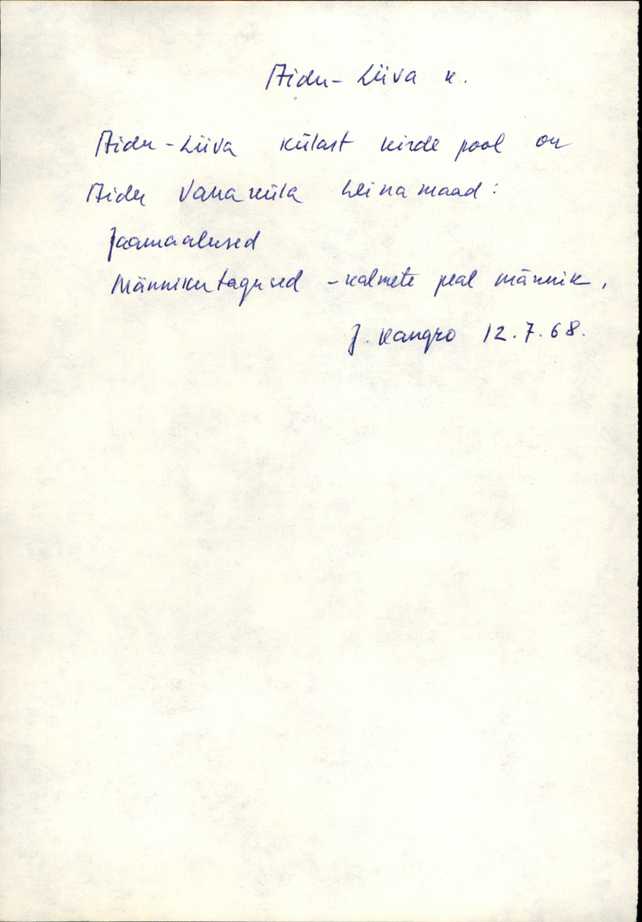 Aidu-Liiva k.
Aidu-Liiva külast kirde pool on
Aidu Vanaküla heinamaad:
Jaamaalused
Männikutagused - kalmete peal männik.
J. Kangro 12.7.68.